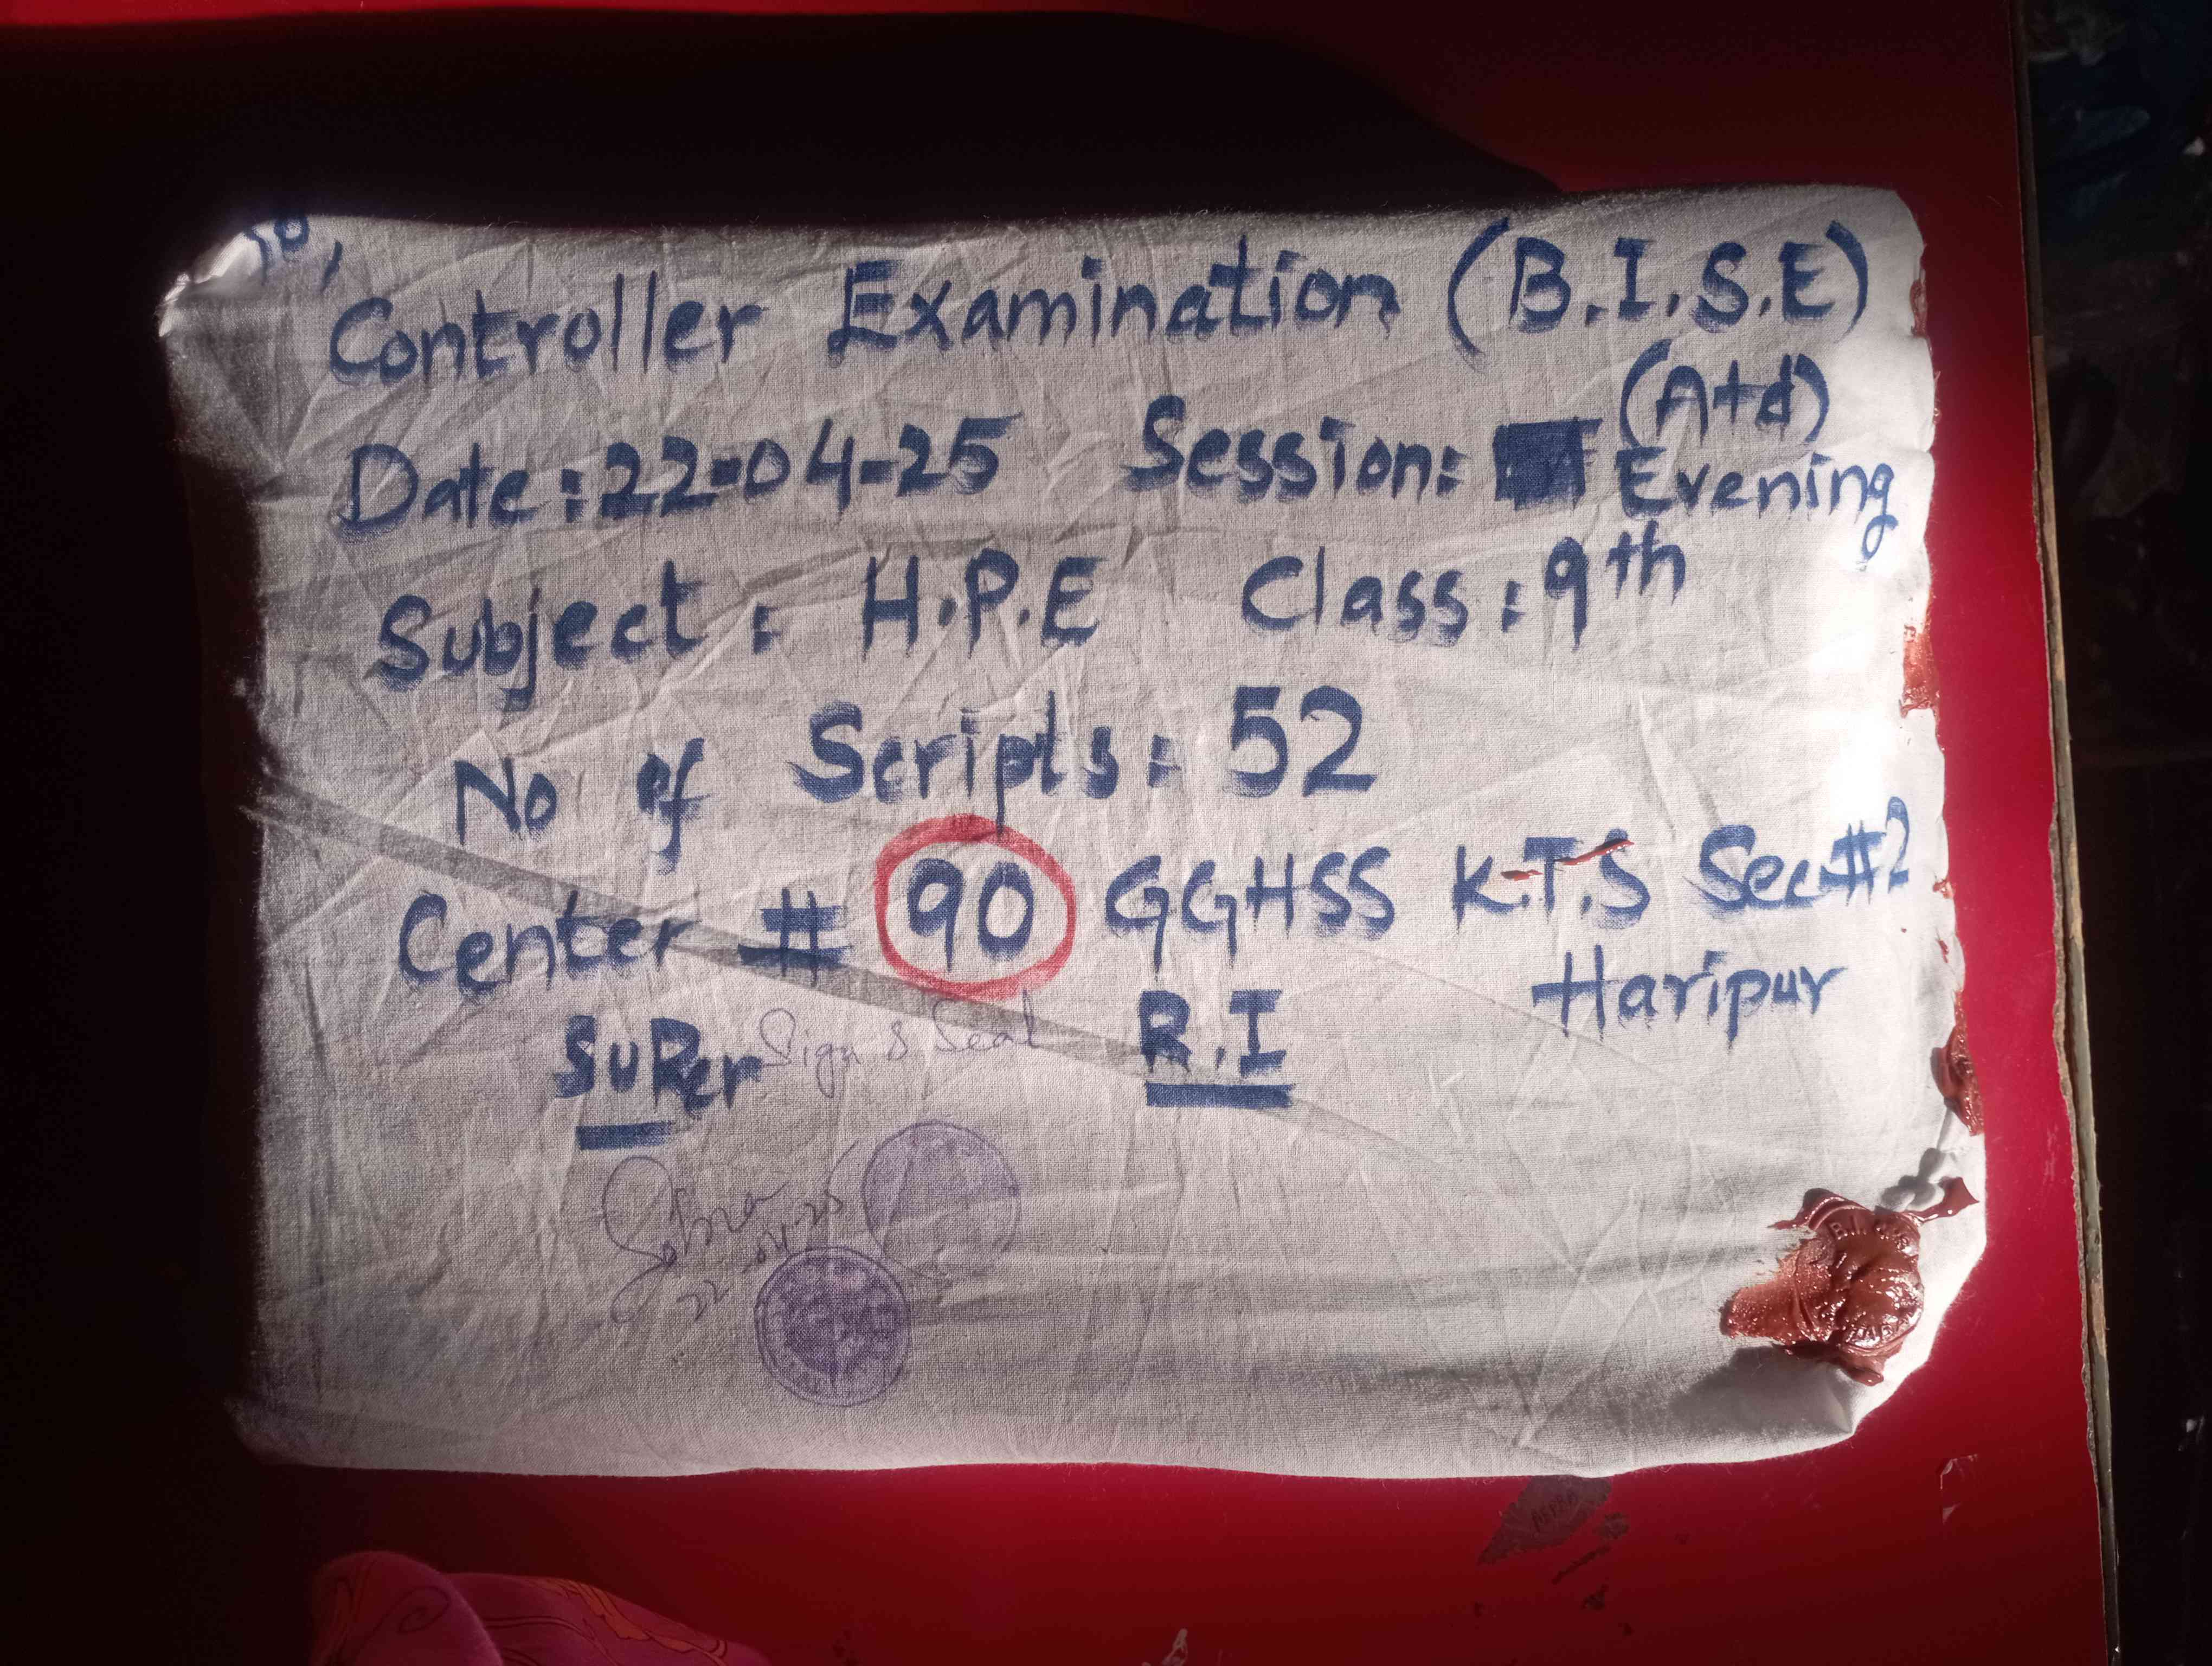 To,
Controller Examination (B.I.S.E)
(Atd)
Date: 22-04-25 Session: Evening
Subject: H.P.E Class: 9th
No of Scripts: 52
Center # 90 GGHSS K.T.S Sec#2
Haripur
SuPer Sign & Seal R.I
22-04-25